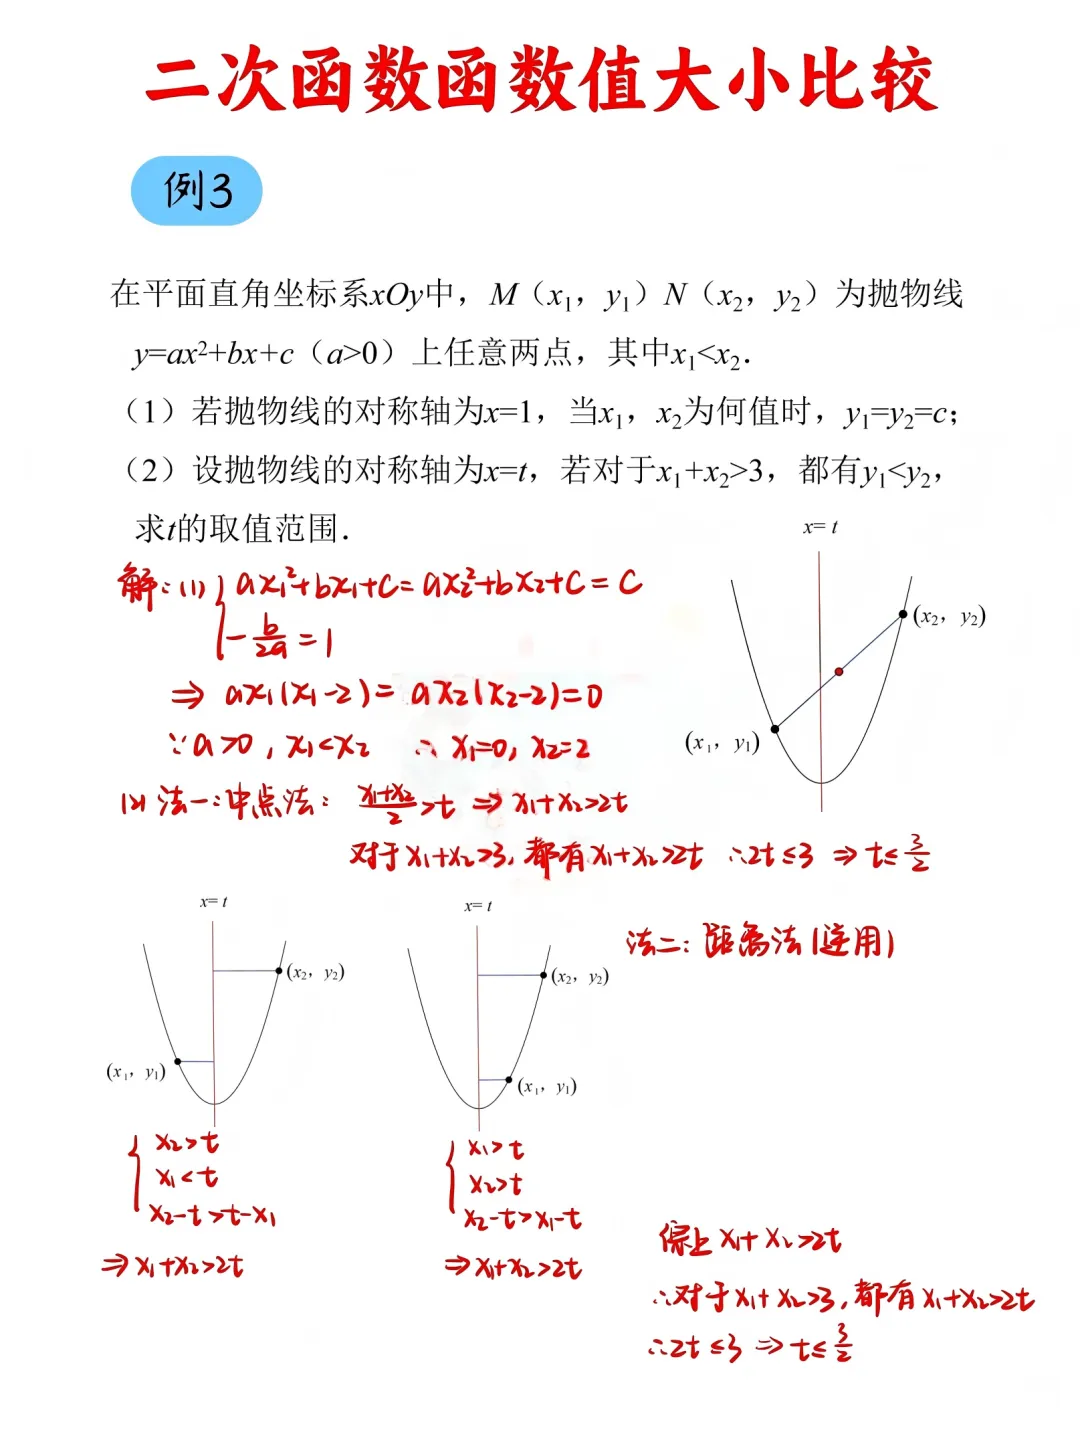 二次函数函数值大小比较
例3
在平面直角坐标系xOy中，M（x₁，y₁）N（x₂，y₂）为抛物线
y=ax²+bx+c（a>0）上任意两点，其中x₁<x₂.
（1）若抛物线的对称轴为x=1，当x₁，x₂为何值时，y₁=y₂=c；
（2）设抛物线的对称轴为x=t，若对于x₁+x₂>3，都有y₁<y₂，
求t的取值范围.
x= t
(x₂，y₂)
(x₁，y₁)
解：(1) { ax₁²+bx₁+c=ax₂²+bx₂+c=c
-b/2a=1
⇒ ax₁(x₁-2)=ax₂(x₂-2)=0
∵a>0，x₁<x₂ ∴x₁=0，x₂=2
(2) 法一：中点法： (x₁+x₂)/2>t ⇒ x₁+x₂>2t
对于x₁+x₂>3，都有x₁+x₂>2t ∴2t≤3 ⇒ t≤3/2
x= t
(x₂，y₂)
(x₁，y₁)
{ x₂>t
x₁<t
x₂-t>t-x₁
⇒x₁+x₂>2t
x= t
(x₂，y₂)
(x₁，y₁)
{ x₁>t
x₂>t
x₂-t>x₁-t
⇒x₁+x₂>2t
法二：距离法(逆用)
综上x₁+x₂>2t
∴对于x₁+x₂>3，都有x₁+x₂>2t
∴2t≤3 ⇒ t≤3/2